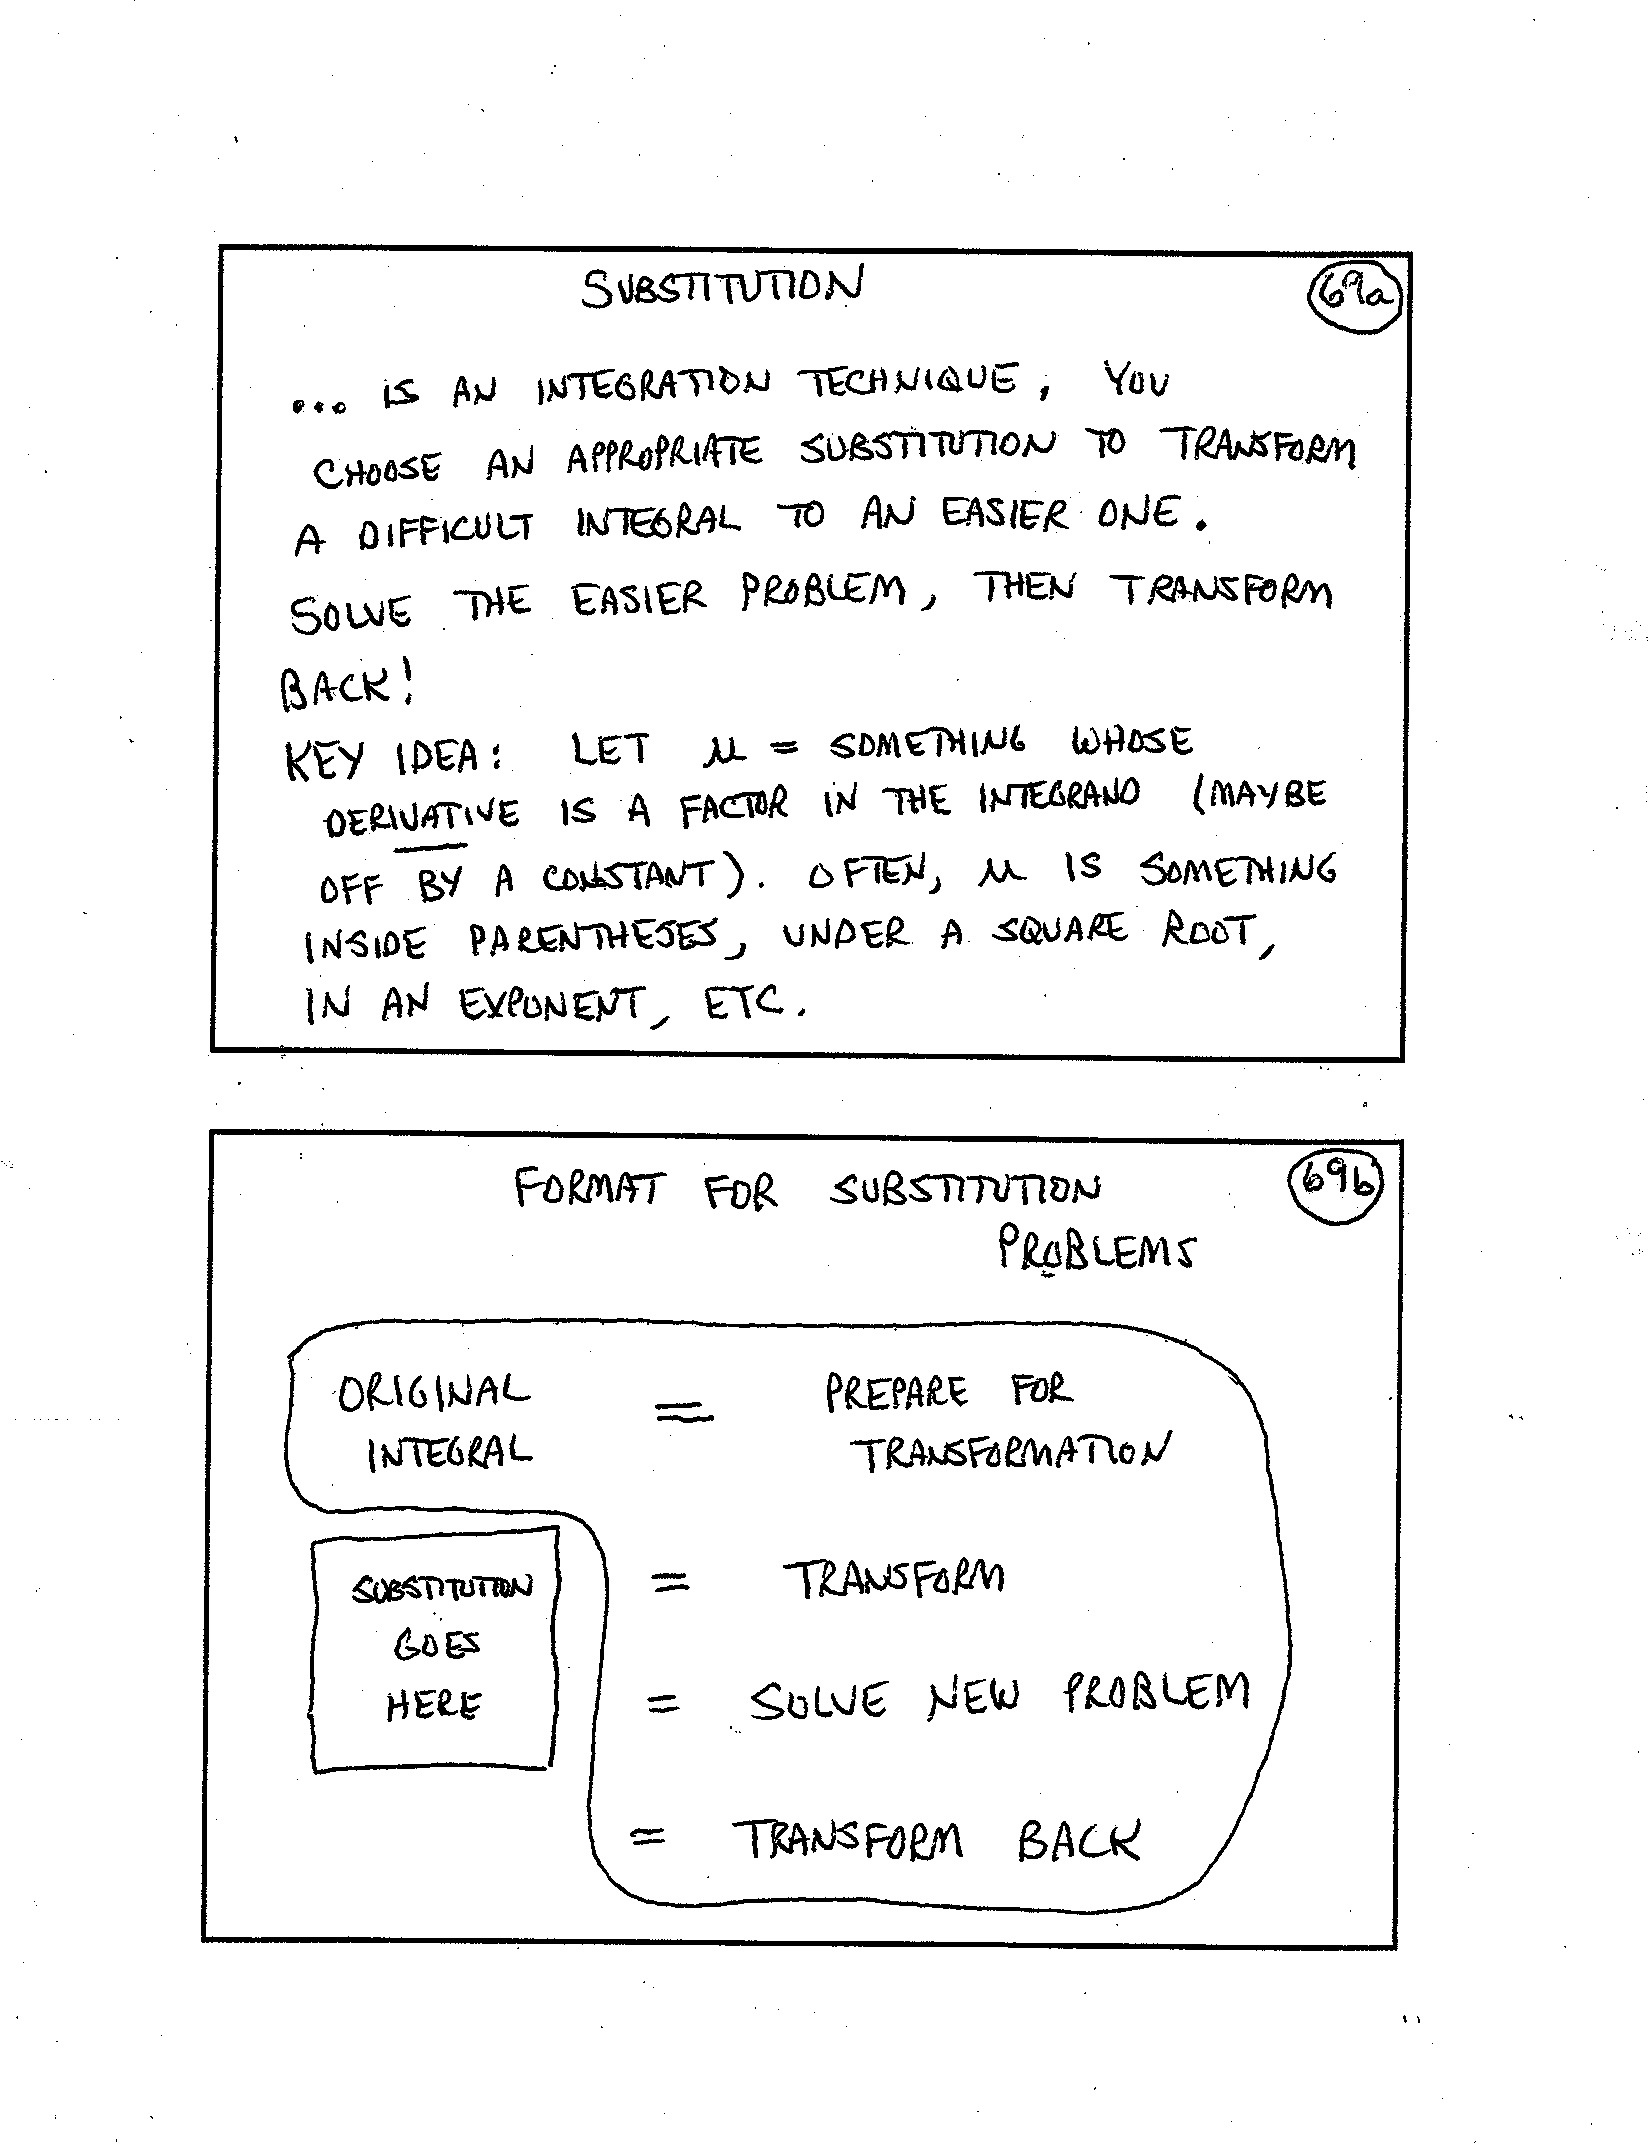 SUBSTITUTION
69a
... IS AN INTEGRATION TECHNIQUE, YOU
CHOOSE AN APPROPRIATE SUBSTITUTION TO TRANSFORM
A DIFFICULT INTEGRAL TO AN EASIER ONE.
SOLVE THE EASIER PROBLEM, THEN TRANSFORM
BACK!
KEY IDEA: LET u = SOMETHING WHOSE
DERIVATIVE IS A FACTOR IN THE INTEGRAND (MAYBE
OFF BY A CONSTANT). OFTEN, u IS SOMETHING
INSIDE PARENTHESES, UNDER A SQUARE ROOT,
IN AN EXPONENT, ETC.
FORMAT FOR SUBSTITUTION
69b
PROBLEMS
ORIGINAL = PREPARE FOR
INTEGRAL TRANSFORMATION
SUBSTITUTION = TRANSFORM
GOES
HERE = SOLVE NEW PROBLEM
= TRANSFORM BACK